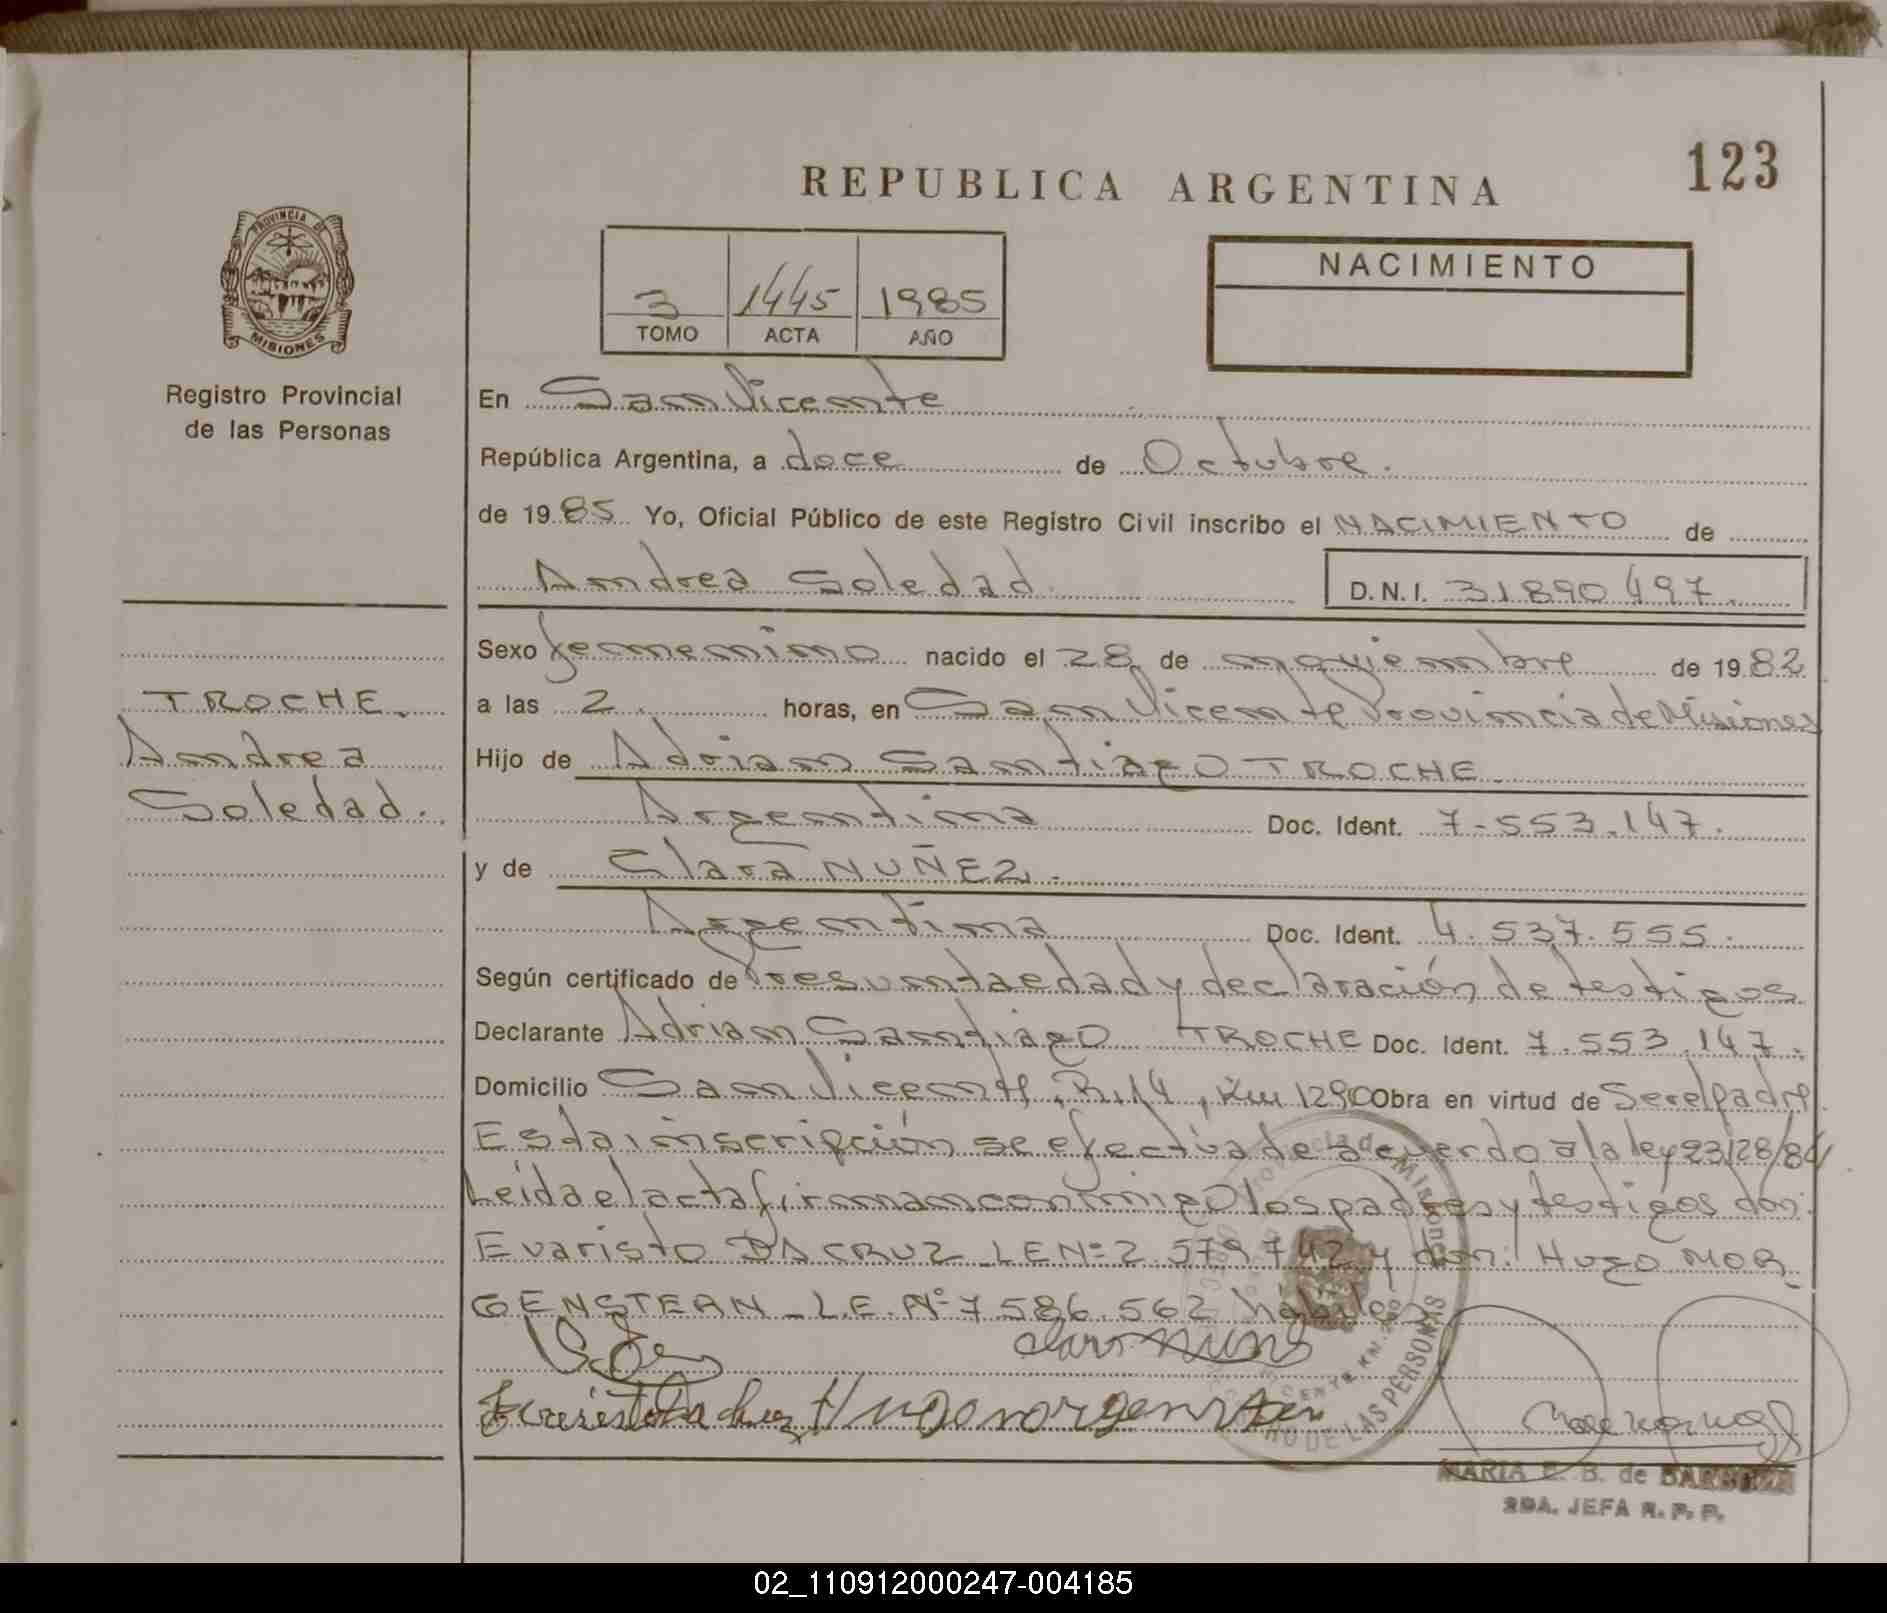 123
REPUBLICA ARGENTINA
PROVINCIA DE
MISIONES
Registro Provincial
de las Personas
3 1445 1985
TOMO ACTA AÑO
NACIMIENTO
En San Vicente
República Argentina, a doce de Octubre.
de 1985 Yo, Oficial Público de este Registro Civil inscribo el NACIMIENTO de
Andrea Soledad. D.N.I. 31890497.
TROCHE.
Andrea
Soledad.
Sexo femenino nacido el 28 de noviembre de 1982
a las 2. horas, en San Vicente Provincia de Misiones
Hijo de Adrian Santiago TROCHE.
Argentina Doc. Ident. 7-553.147.
y de Clara NUÑEZ.
Argentina Doc. Ident. 4.537.555.
Según certificado de Presunta edad y declaración de testigos
Declarante Adrian Santiago TROCHE Doc. Ident. 7.553.147.
Domicilio San Vicente, R.14, Km 1290 Obra en virtud de Ser el padre.
Esta inscripción se efectúa de acuerdo a la ley 23128/84
Leída el acta firman conmigo los padres y testigos don:
Evaristo DA CRUZ LE Nº 2.579742 y don: Hugo MOR
GENSTERN - L.E. Nº 7.586.562 hábiles
Hugo morgenstern
Provincia de Misiones
REGISTRO DE LAS PERSONAS
MARIA E. B. de BARBOZA
2DA. JEFA R. P. P.
02_110912000247-004185